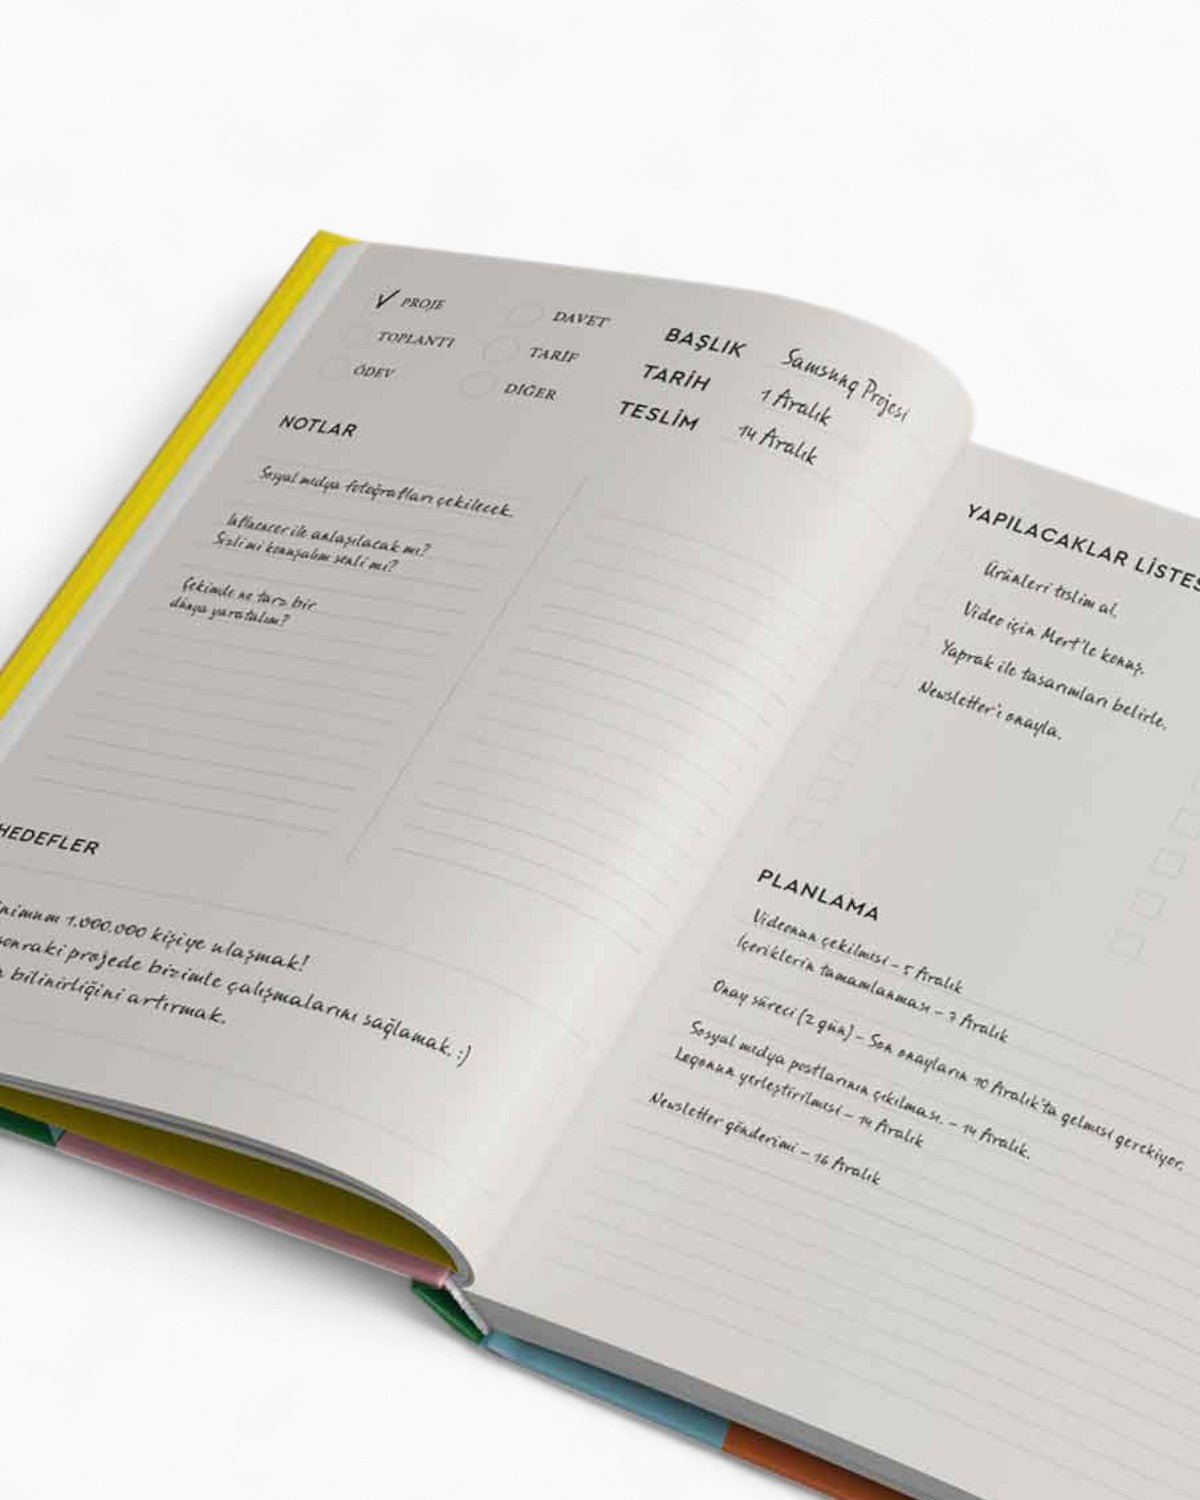 ✓ PROJE
DAVET
TOPLANTI
TARİF
ÖDEV
DİĞER
BAŞLIK Samsung Projesi
TARİH 1 Aralık
TESLİM 14 Aralık
NOTLAR
Sosyal medya fotoğrafları çekilecek.
Influencer ile anlaşılacak mı?
Sizli mi konuşalım senli mi?
Çekimde ne tarz bir
dünya yaratalım?
HEDEFLER
1.000.000 kişiye ulaşmak!
sonraki projede bizimle çalışmalarını sağlamak. :)
bilinirliğini artırmak.
YAPILACAKLAR LİSTES
Ürünleri teslim al.
Video için Mert'le konuş.
Yaprak ile tasarımları belirle.
Newsletter'ı onayla.
PLANLAMA
Videonun çekilmesi – 5 Aralık
İçeriklerin tamamlanması – 7 Aralık
Onay süreci (2 gün) – Son onayların 10 Aralık'ta gelmesi gerekiyor.
Sosyal medya postlarının çıkılması. – 14 Aralık.
Logonun yerleştirilmesi – 14 Aralık
Newsletter gönderimi – 16 Aralık